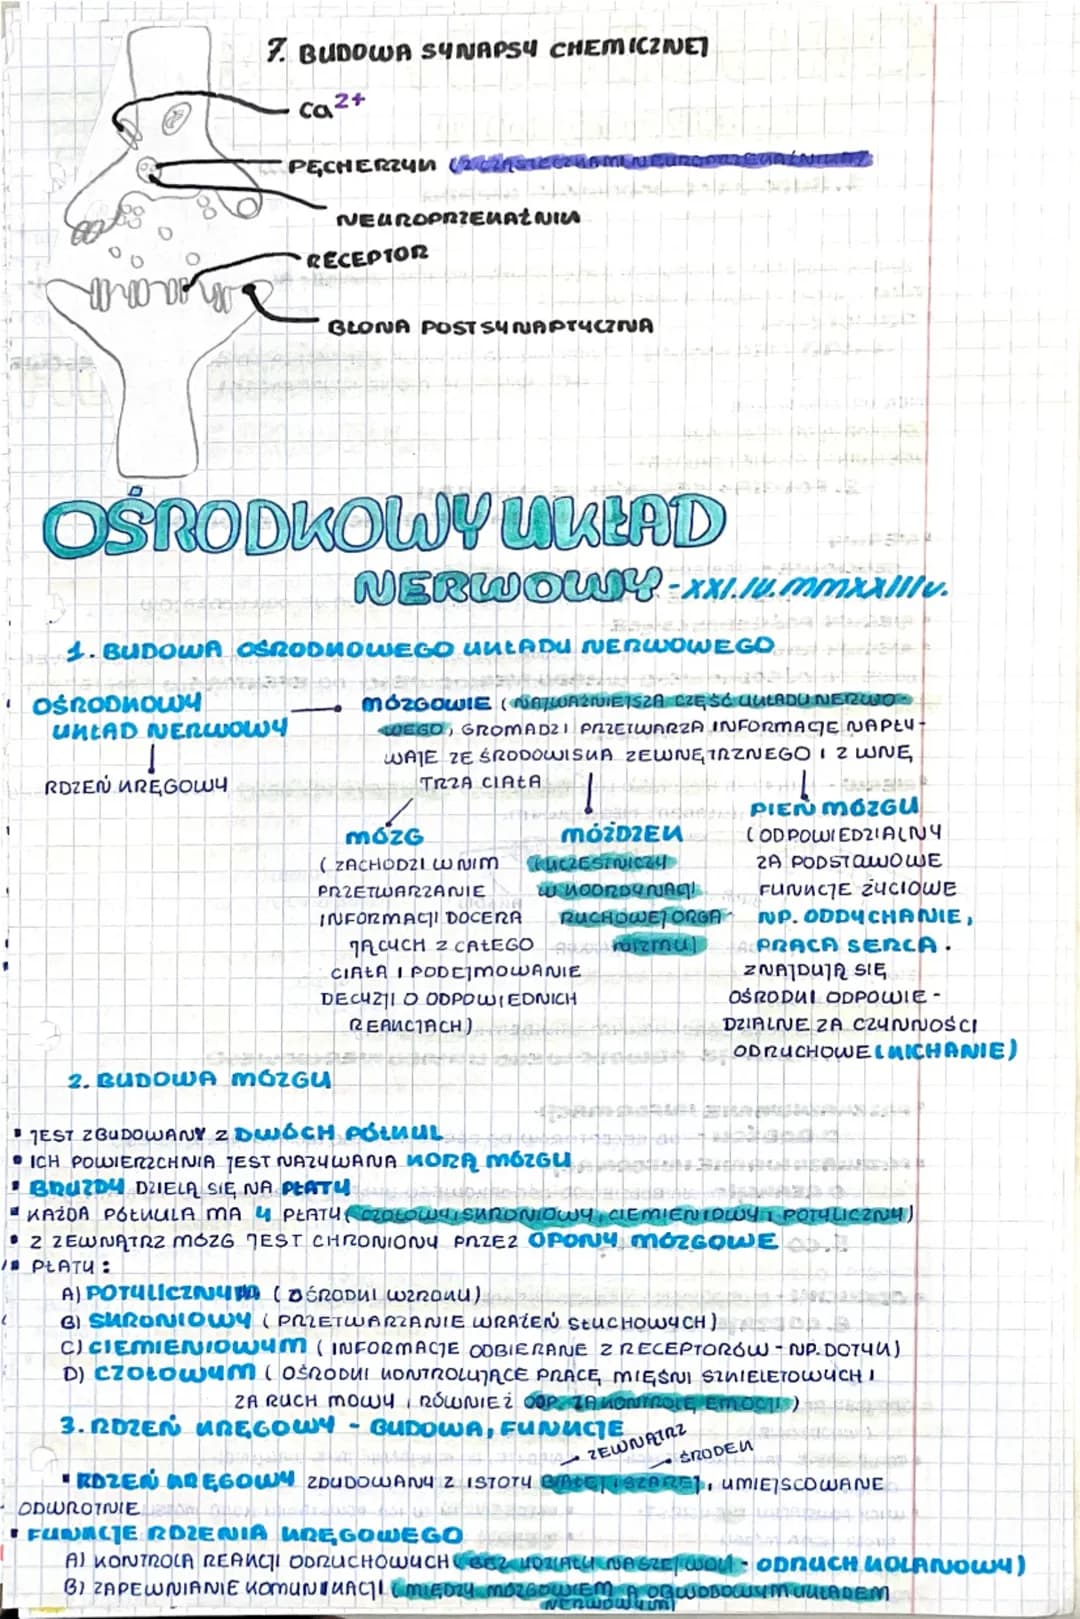 7. BUDOWA SYNAPSY CHEMICZNEJ
Ca2+
PĘCHERZYK (Z CZĄSTECZKAMI NEUROPRZEKAŹNIKA)
NEUROPRZEKAŹNIK
RECEPTOR
BŁONA POSTSYNAPTYCZNA
OŚRODKOWY UKŁAD
NERWOWY - XXI.IV.MMXXIIIV.
1. BUDOWA OŚRODKOWEGO UKŁADU NERWOWEGO
OŚRODKOWY
UKŁAD NERWOWY
RDZEŃ KRĘGOWY
MÓZGOWIE (NAJWAŻNIEJSZA CZĘŚĆ UKŁADU NERWO-
WEGO, GROMADZI PRZETWARZA INFORMACJE NAPŁY-
WAJE ZE ŚRODOWISKA ZEWNĘTRZNEGO I Z WNĘ
TRZA CIAŁA
MÓZG
( ZACHODZI W NIM
PRZETWARZANIE
INFORMACJI DOCERA
JĄCYCH Z CAŁEGO
CIAŁA I PODEJMOWANIE
DECYZJI O ODPOWIEDNICH
REAKCJACH)
MÓŻDŻEK
(UCZESTNICZY
W KOORDYNACJI
RUCHOWEJ ORGA-
NIZMU)
PIEŃ MÓZGU
(ODPOWIEDZIALNY
ZA PODSTAWOWE
FUNKCJE ŻYCIOWE
NP. ODDYCHANIE,
PRACA SERCA.
ZNAJDUJĄ SIĘ
OŚRODKI ODPOWIE-
DZIALNE ZA CZYNNOŚCI
ODRUCHOWE (KICHANIE)
2. BUDOWA MÓZGU
▪ JEST ZBUDOWANY Z DWÓCH PÓŁKUL
▪ ICH POWIERZCHNIA JEST NAZYWANA KORĄ MÓZGU
▪ BRUZDY DZIELĄ SIĘ NA PŁATY
▪ KAŻDA PÓŁKULA MA 4 PŁATY (CZOŁOWY, SKRONIOWY, CIEMIENIOWY I POTYLICZNY)
▪ Z ZEWNĄTRZ MÓZG JEST CHRONIONY PRZEZ OPONY MÓZGOWE
▪ PŁATY:
A) POTYLICZNYM (OŚRODKI WZROKU)
B) SKRONIOWY (PRZETWARZANIE WRAŻEŃ SŁUCHOWYCH)
C) CIEMIENIOWYM (INFORMACJE ODBIERANE Z RECEPTORÓW - NP. DOTYKU)
D) CZOŁOWYM (OŚRODKI KONTROLUJĄCE PRACĘ MIĘŚNI SZKIELETOWYCH I
ZA RUCH MOWY, RÓWNIEŻ ODP. ZA KONTROLĘ EMOCJI)
3. RDZEŃ KRĘGOWY - BUDOWA, FUNKCJE
ZEWNĄTRZ
ŚRODEK
▪ RDZEŃ KRĘGOWY ZBUDOWANY Z ISTOTY BIAŁEJ I SZAREJ, UMIEJSCOWANE
ODWROTNIE
▪ FUNKCJE RDZENIA KRĘGOWEGO
A) KONTROLA REAKCJI ODRUCHOWYCH (BEZ UDZIAŁU NASZEJ WOLI - ODRUCH KOLANOWY)
B) ZAPEWNIANIE KOMUNIKACJI (MIĘDZY MÓZGOWIEM A OBWODOWYM UKŁADEM
NERWOWYM)